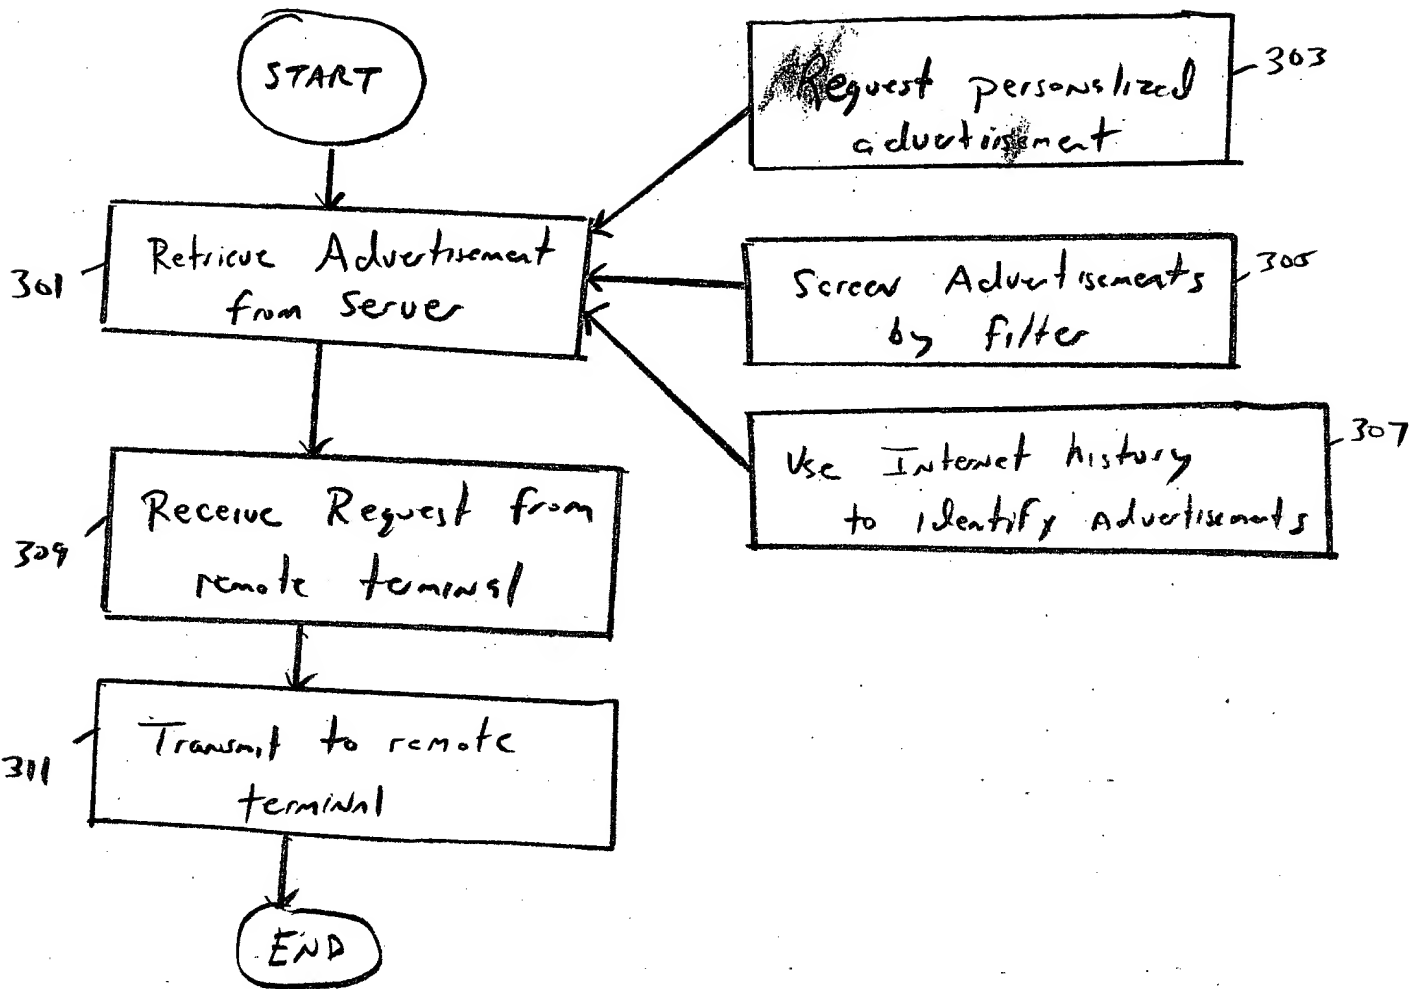 START
301
Retrieve Advertisement
from Server
303
Request personalized
advertisement
305
Screen Advertisements
by filter
307
Use Internet history
to identify Advertisements
309
Receive Request from
remote terminal
311
Transmit to remote
terminal
END